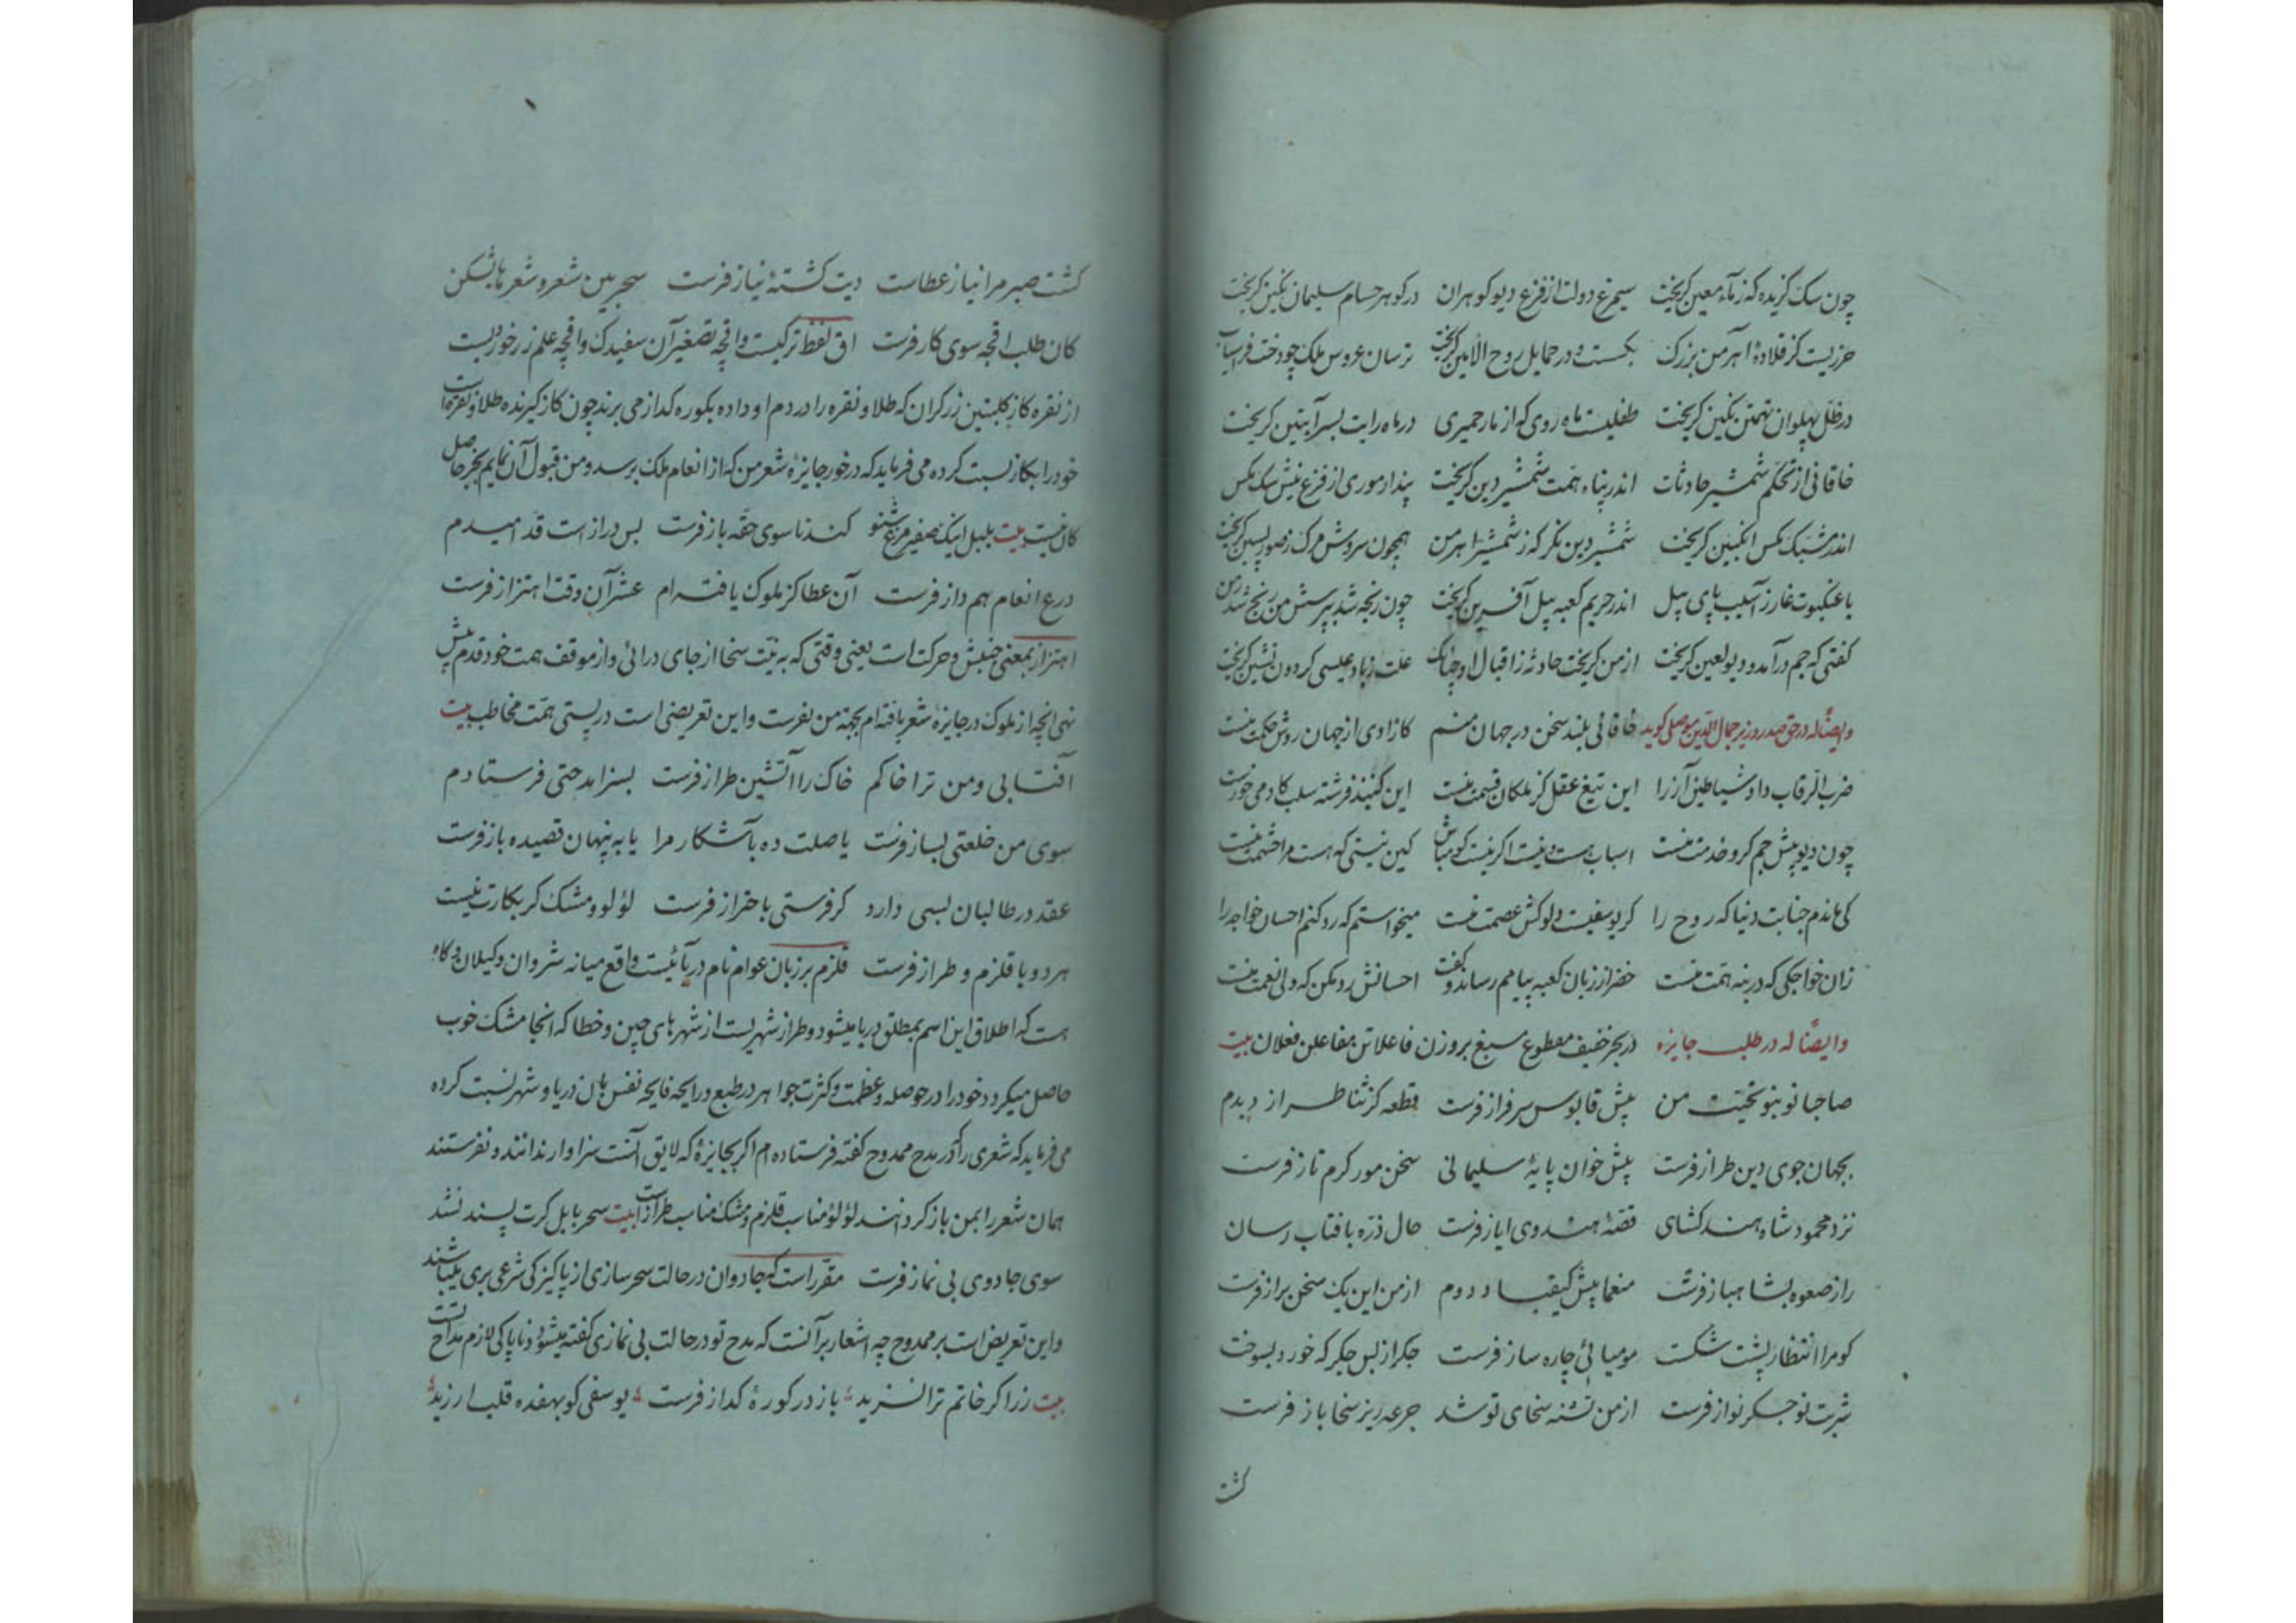 چون سک گزیده که ز ماء معین گریخت سیمرغ دولت از فزع دیو گوهران در گوهر حسام سلیمان نگین گریخت
حرزیست کز قلادهٔ اهرمن بزرک بکسست و در حمایل روح الامین گریخت ترسان عروس ملک چو دخت فراسیاب
در ظل پهلوان تهمتن نگین گریخت طفلیست ماه روی که از مار حمیری در ماه رایت پسر آبتین گریخت
خاقانی از تحکم شمشیر حادثات اندر پناه همت شمشیر دین گریخت پندار موری از فزع نیش سک مکس
اندر مشبک مکس انکبین گریخت شمشیر دین نکر که ز شمشیر اهرمن همچون سروش مرک ز صور پسین گریخت
با عنکبوت غار ز آسیب پای پیل اندر حریم کعبه پیل آفرین گریخت چون رنجه شد بپرسش من رنج شد ز من
کفتی که جم درآمد و دیو لعین گریخت از من گریخت حادثه ز اقبال او چنانک علت ز باد عیسی کردون نشین گریخت
و ایضاً له در حق صدر وزیر جمال الدین موصلی کوید خاقانی بلند سخن در جهان منم کازادی از جهان روش حکمت منست
ضرب الرقاب داد شیاطین آز را این تیغ عقل کز ملکان قسمت منست این کنبد فرشته سلب کادمی خورست
چون دیو پیش جم کرو خدمت منست اسباب هست و نیست اکر نیست کو مباش کین نیستی که هست مرا حشمت منست
کی ماندم جنابت دنیا که روح را کر یوسفیست دلوکش عصمت منست میخواستم که رد کنم احسان خواجه را
زان خواجکی که در بنه همت منست خضر از زبان کعبه پیامم رساند و کفت احسانش رد مکن که ولی نعمت منست
و ایضاً له در طلب جایزه در بحر خفیف مقطوع مسبغ بر وزن فاعلاتن مفاعلن فعلان بیت
صاحبا نو بنو تحیت من پیش قابوس سرفراز فرست قطعه کز ثنا طرازیدم
بجهان جوی دین طراز فرست پیش خوان پایهٔ سلیمانی سخن مور کرم تاز فرست
نزد محمود شاه هند کشای قصهٔ هندوی ایاز فرست حال ذره بافتاب رسان
راز صعوه بشاهباز فرست منعما پیش کیقباد دوم از من این یک سخن براز فرست
کو مرا انتظار پشت شکست مومیائی چاره ساز فرست جکر از بس جکر که خورد بسوخت
شربت نو جکر نواز فرست از من تشنه سخای تو شد جرعه ریز سخا باز فرست
کشت
کشت صبر مرا نیاز عطاست دیت کشتهٔ نیاز فرست سحر بین شعر و شعرها بشکن
کان طلب اقچه سوی کار فرست اق لفظ ترکیست و اقچه تصغیر آن سفیدک و اقچه علم زر خوردیست
از نقره کاز کلبتین زرکران که طلا و نقره را در دم او داده بکوره کداز می برند چون کاز کیرنده طلا و نقره است
خود را بکاز نسبت کرده می فرماید که در خور جایزهٔ شعر من که از انعام ملک برسد و من قبول آن نمایم بجز حاصل
کان نیست بیت بلبل اینک صفیر مرغ شنو کندنا سوی حقه باز فرست بس دراز است قد امیدم
درع انعام هم دراز فرست آن عطا کز ملوک یافته ام عشر آن وقت اهتزاز فرست
اهتزاز بمعنی جنبش و حرکت است یعنی وقتی که به نیت سخا از جای درائی و از موقف همت خود قدم پیش
نهی انچه از ملوک در جایزهٔ شعر یافته ام بجهة من بفرست و این تعریضی است در پستی همت مخاطب بیت
آفتابی و من ترا خاکم خاک را آتشین طراز فرست بسزا مدحتی فرستادم
سوی من خلعتی بساز فرست یا صلت ده بآشکار مرا یا به پنهان قصیده باز فرست
عقد در طالبان بسی دارد کر فرستی باحتراز فرست لؤلؤ و مشک کر بکارت نیست
هر دو با قلزم و طراز فرست قلزم بر زبان عوام نام دریائیست واقع میانه شروان و کیلان و کاه
هست که اطلاق این اسم بمطلق دریا میشود و طراز شهریست از شهرهای چین و خطا که انجا مشک خوب
حاصل میکردد خود را در حوصله و عظمت و کثرت جواهر در طبع و رایحه فایحه نفس بان دریا و شهر نسبت کرده
می فرماید که شعری را که در مدح ممدوح کفته فرستاده ام اکر بجایزهٔ که لایق آنست سزاوار ندانند و نفرستند
همان شعر را بمن باز کردانند لؤلؤ مناسب قلزم و مشک مناسب طراز است بیت سحر بابل کرت پسند نشد
سوی جادوی بی نماز فرست مقرر است که جادوان در حالت سحرسازی از پاکیزکی شرعی بری میباشند
و این تعریض است بر ممدوح چه اشعار بر آنست که مدح تو در حالت بی نمازی کفته میشود و ناپاکی لازم مداح تست
بیت زر اکر خاتم ترا نسزید باز در کورهٔ کداز فرست یوسفی کو بهفده قلب ارزید